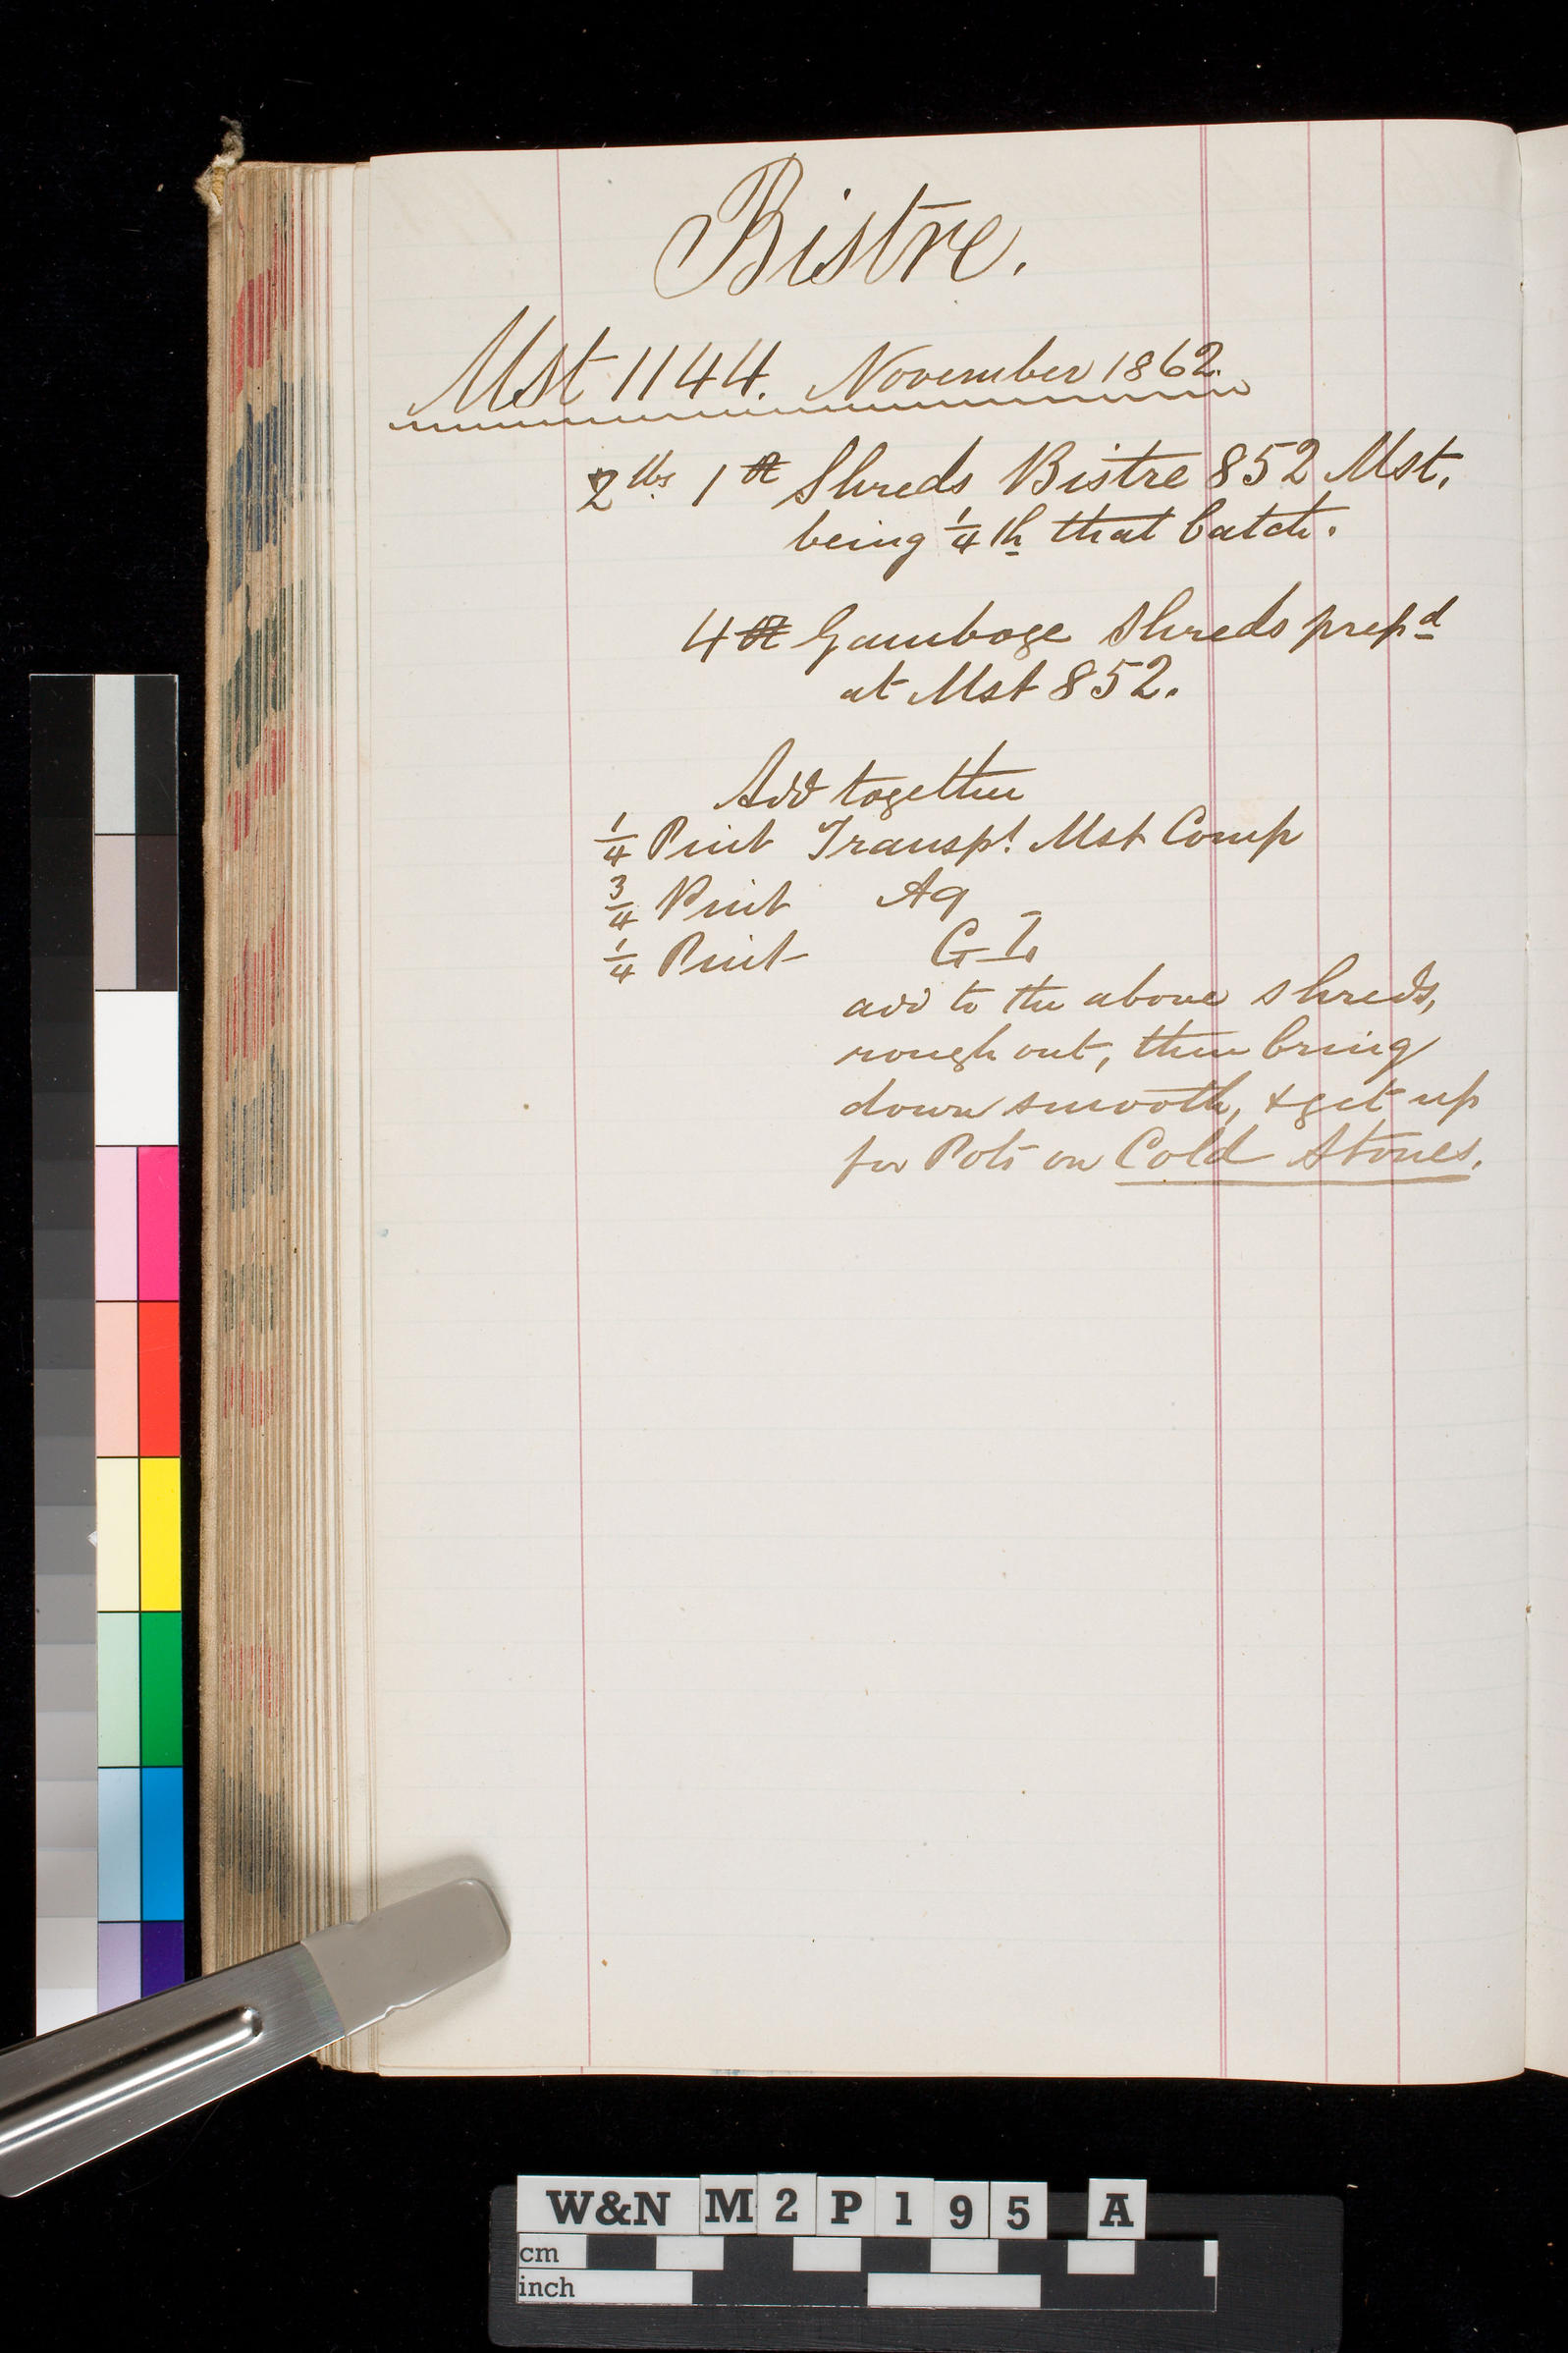 Bistre.
Mst 1144. November 1862.
2 lbs 1 oz Shreds Bistre 852 Mst.
being 1/4 th that batch.
4 oz Gamboge Shreds prepd
at Mst 852.
Add together
1/4 Pint Transpt Mst Comp
3/4 Pint Aq
1/4 Pint G I
add to the above shreds,
rough out, then bring
down smooth, & get up
for Pots on Cold Stones.
W&N M2P195 A
cm
inch